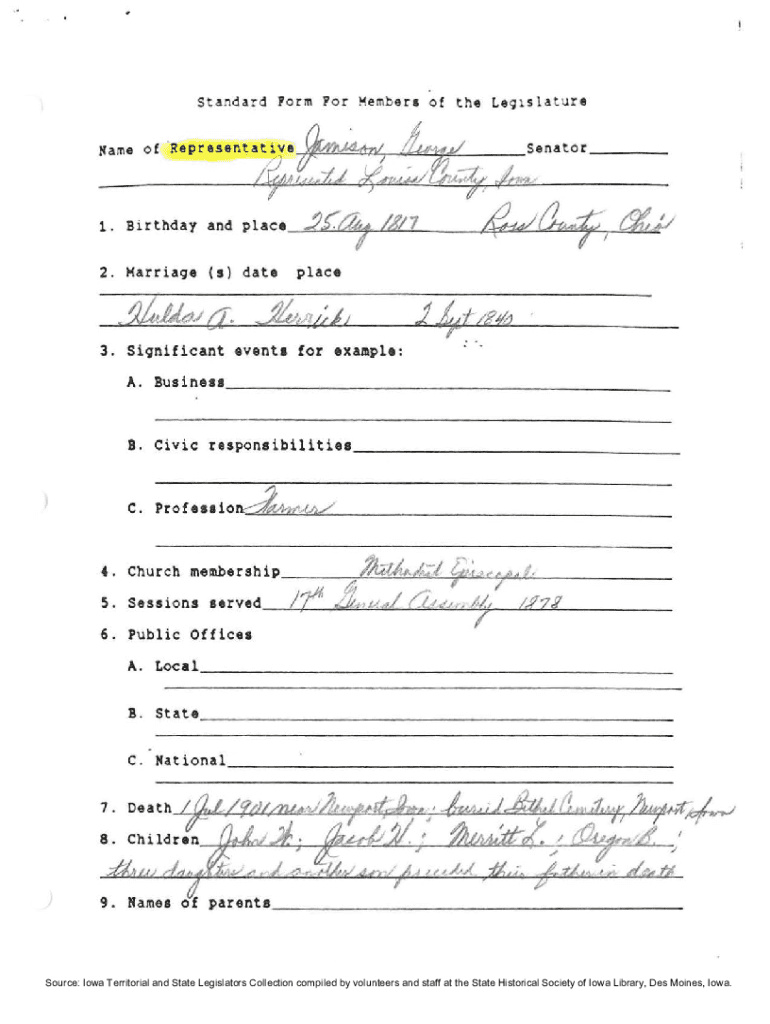 Standard Form For Members of the Legislature
Name of Representative Jamison, George Senator
Represented Louisa County, Iowa
1. Birthday and place 25 Aug 1817 Ross County, Ohio
2. Marriage (s) date place
Hulda A. Herrick 2 Sept 1840
3. Significant events for example:
A. Business
B. Civic responsibilities
C. Profession Farmer
4. Church membership Methodist Episcopal
5. Sessions served 17th General Assembly 1878
6. Public Offices
A. Local
B. State
C. National
7. Death 1 Jul 1901 near Newport, Iowa; buried Bethel Cemetery, Newport, Iowa
8. Children John W.; Jacob H.; Merritt L.; Oregon B.;
three daughters and another son preceded their father in death
9. Names of parents
Source: Iowa Territorial and State Legislators Collection compiled by volunteers and staff at the State Historical Society of Iowa Library, Des Moines, Iowa.